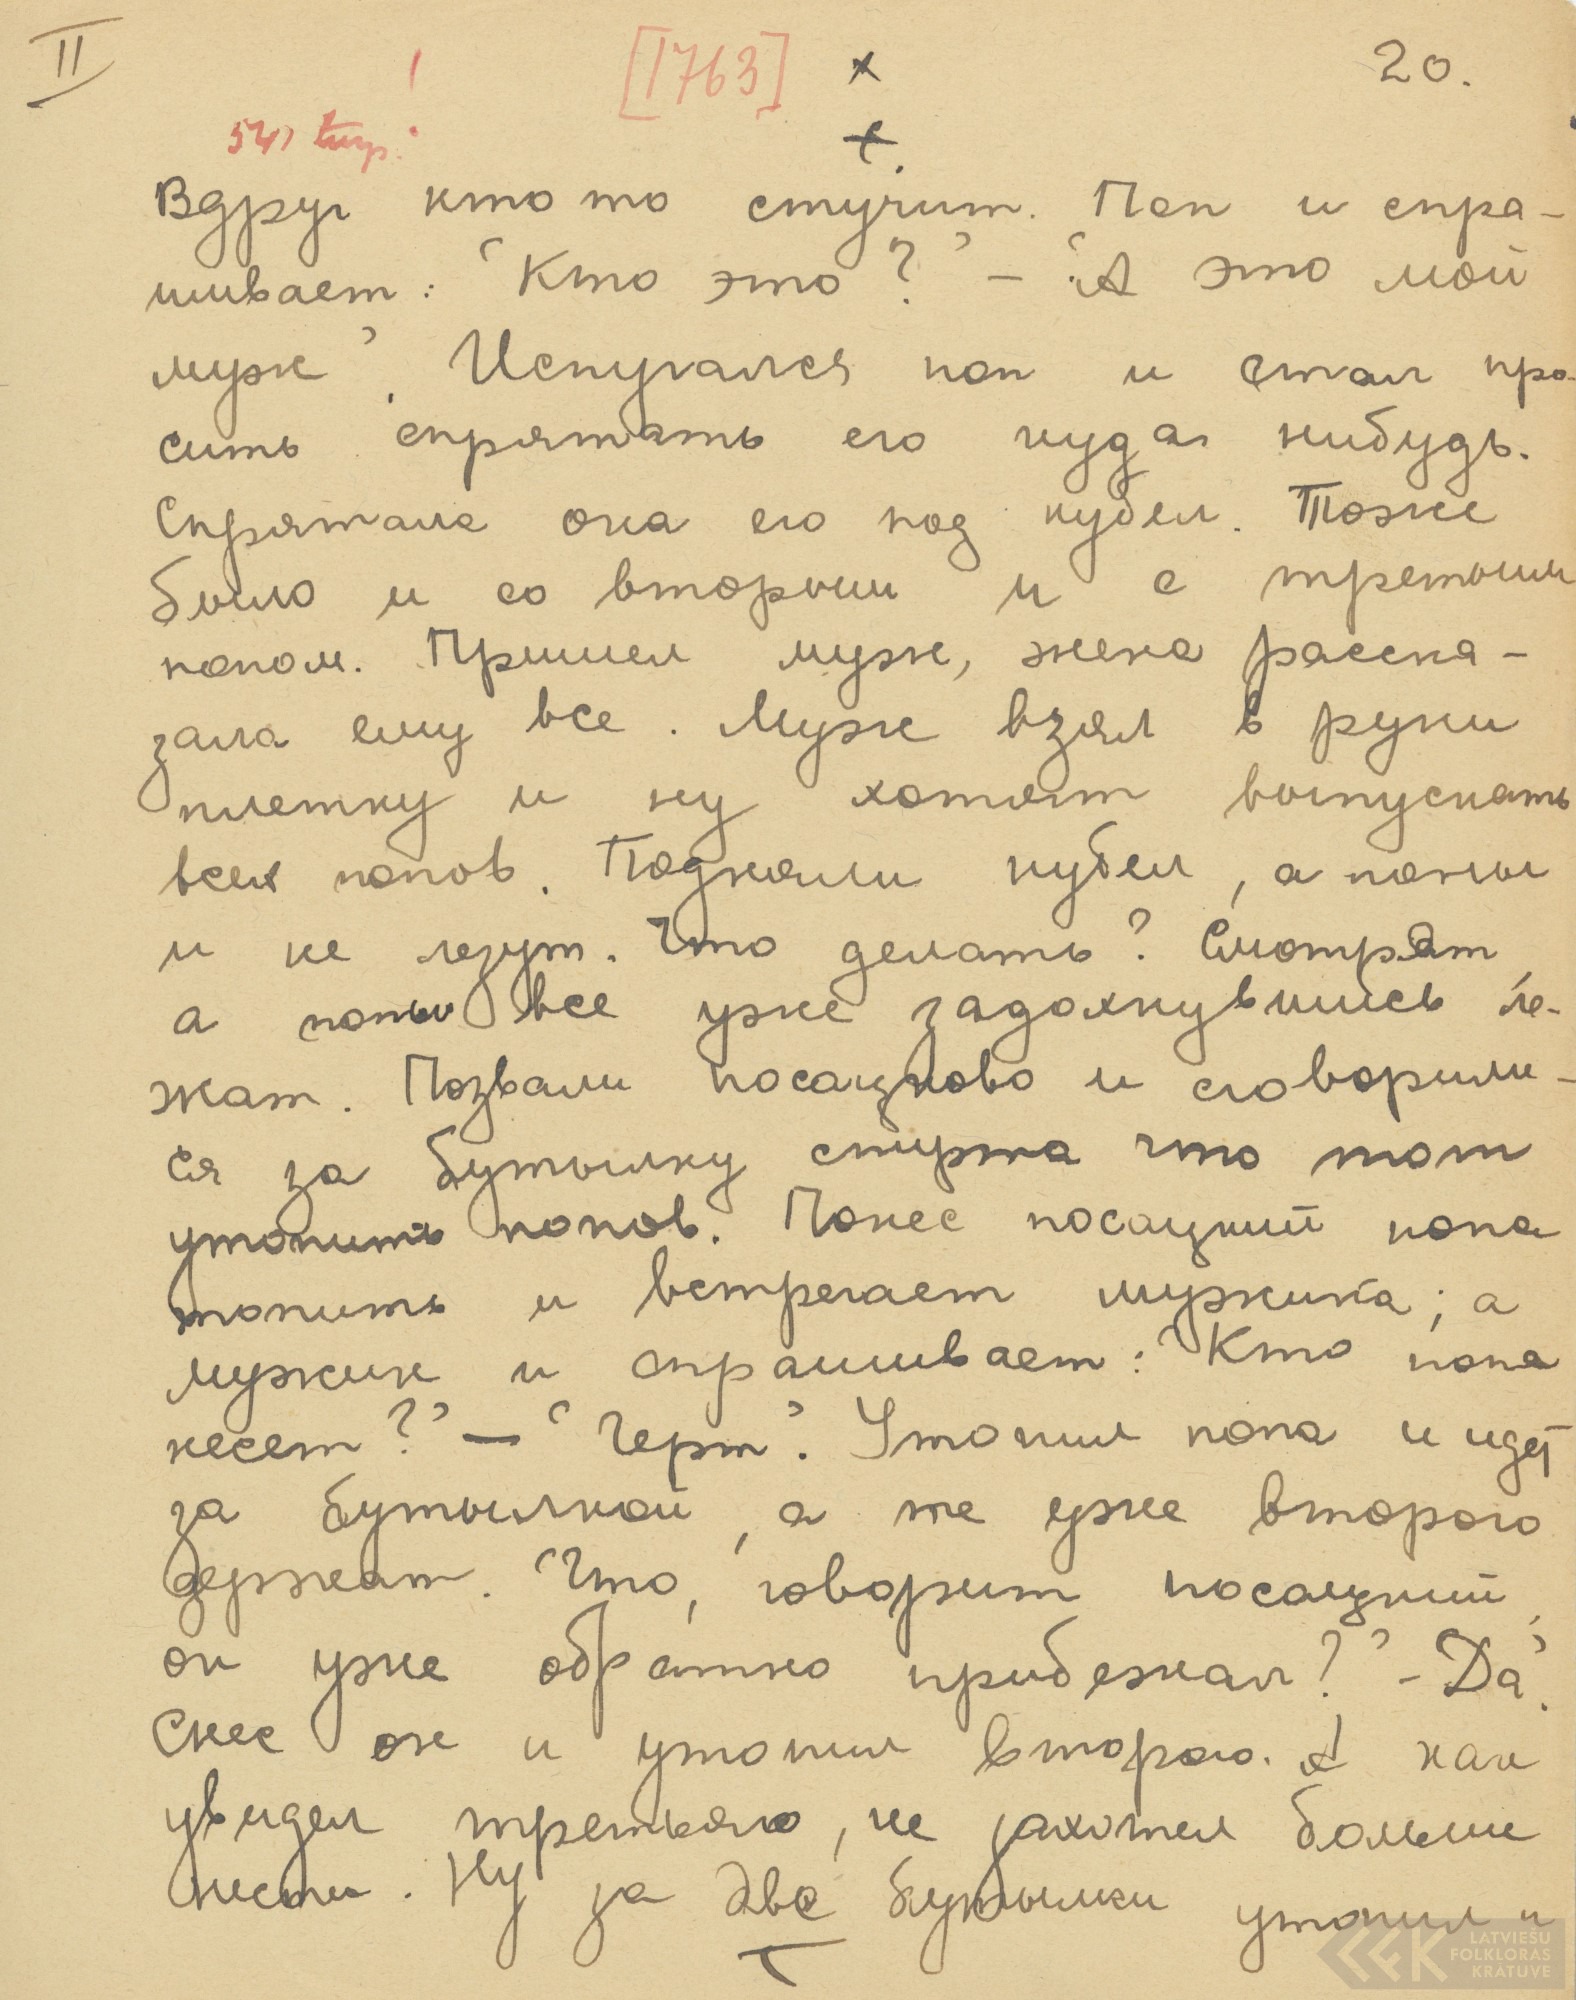 II
[1763]
20.
Вдруг кто то стучит. Поп и спра-
шивает: "Кто это?" – "А это мой
муж". Испугался поп и стал про-
сить спрятать его куда нибудь.
Спрятала она его под кубел. Тоже
было и со вторым и с третьим
попом. Пришел муж, жена расска-
зала ему все. Муж взял в руки
плетку и ну хотят выпускать
всех попов. Подняли кубел, а попы
и не лезут. Что делать? Смотрят,
а попы все уже задохнувшись ле-
жат. Позвали посацково и сговорили-
ся за бутылку спирта что тот
утопить попов. Понес посацкий попа
топить и встречает мужика; а
мужик и спрашивает: "Кто попа
несет?" – "Черт". Утопил попа и идет
за бутылкой, а те уже второго
держат. "Что, говорит посацкий,
он уже обратно прибежал?" - "Да".
Снес он и утопил второго. А как
увидел третьяго, не захотел больше
нести. Ну за две бутылки утопил и
LATVIEŠU
FOLKLORAS
KRĀTUVE